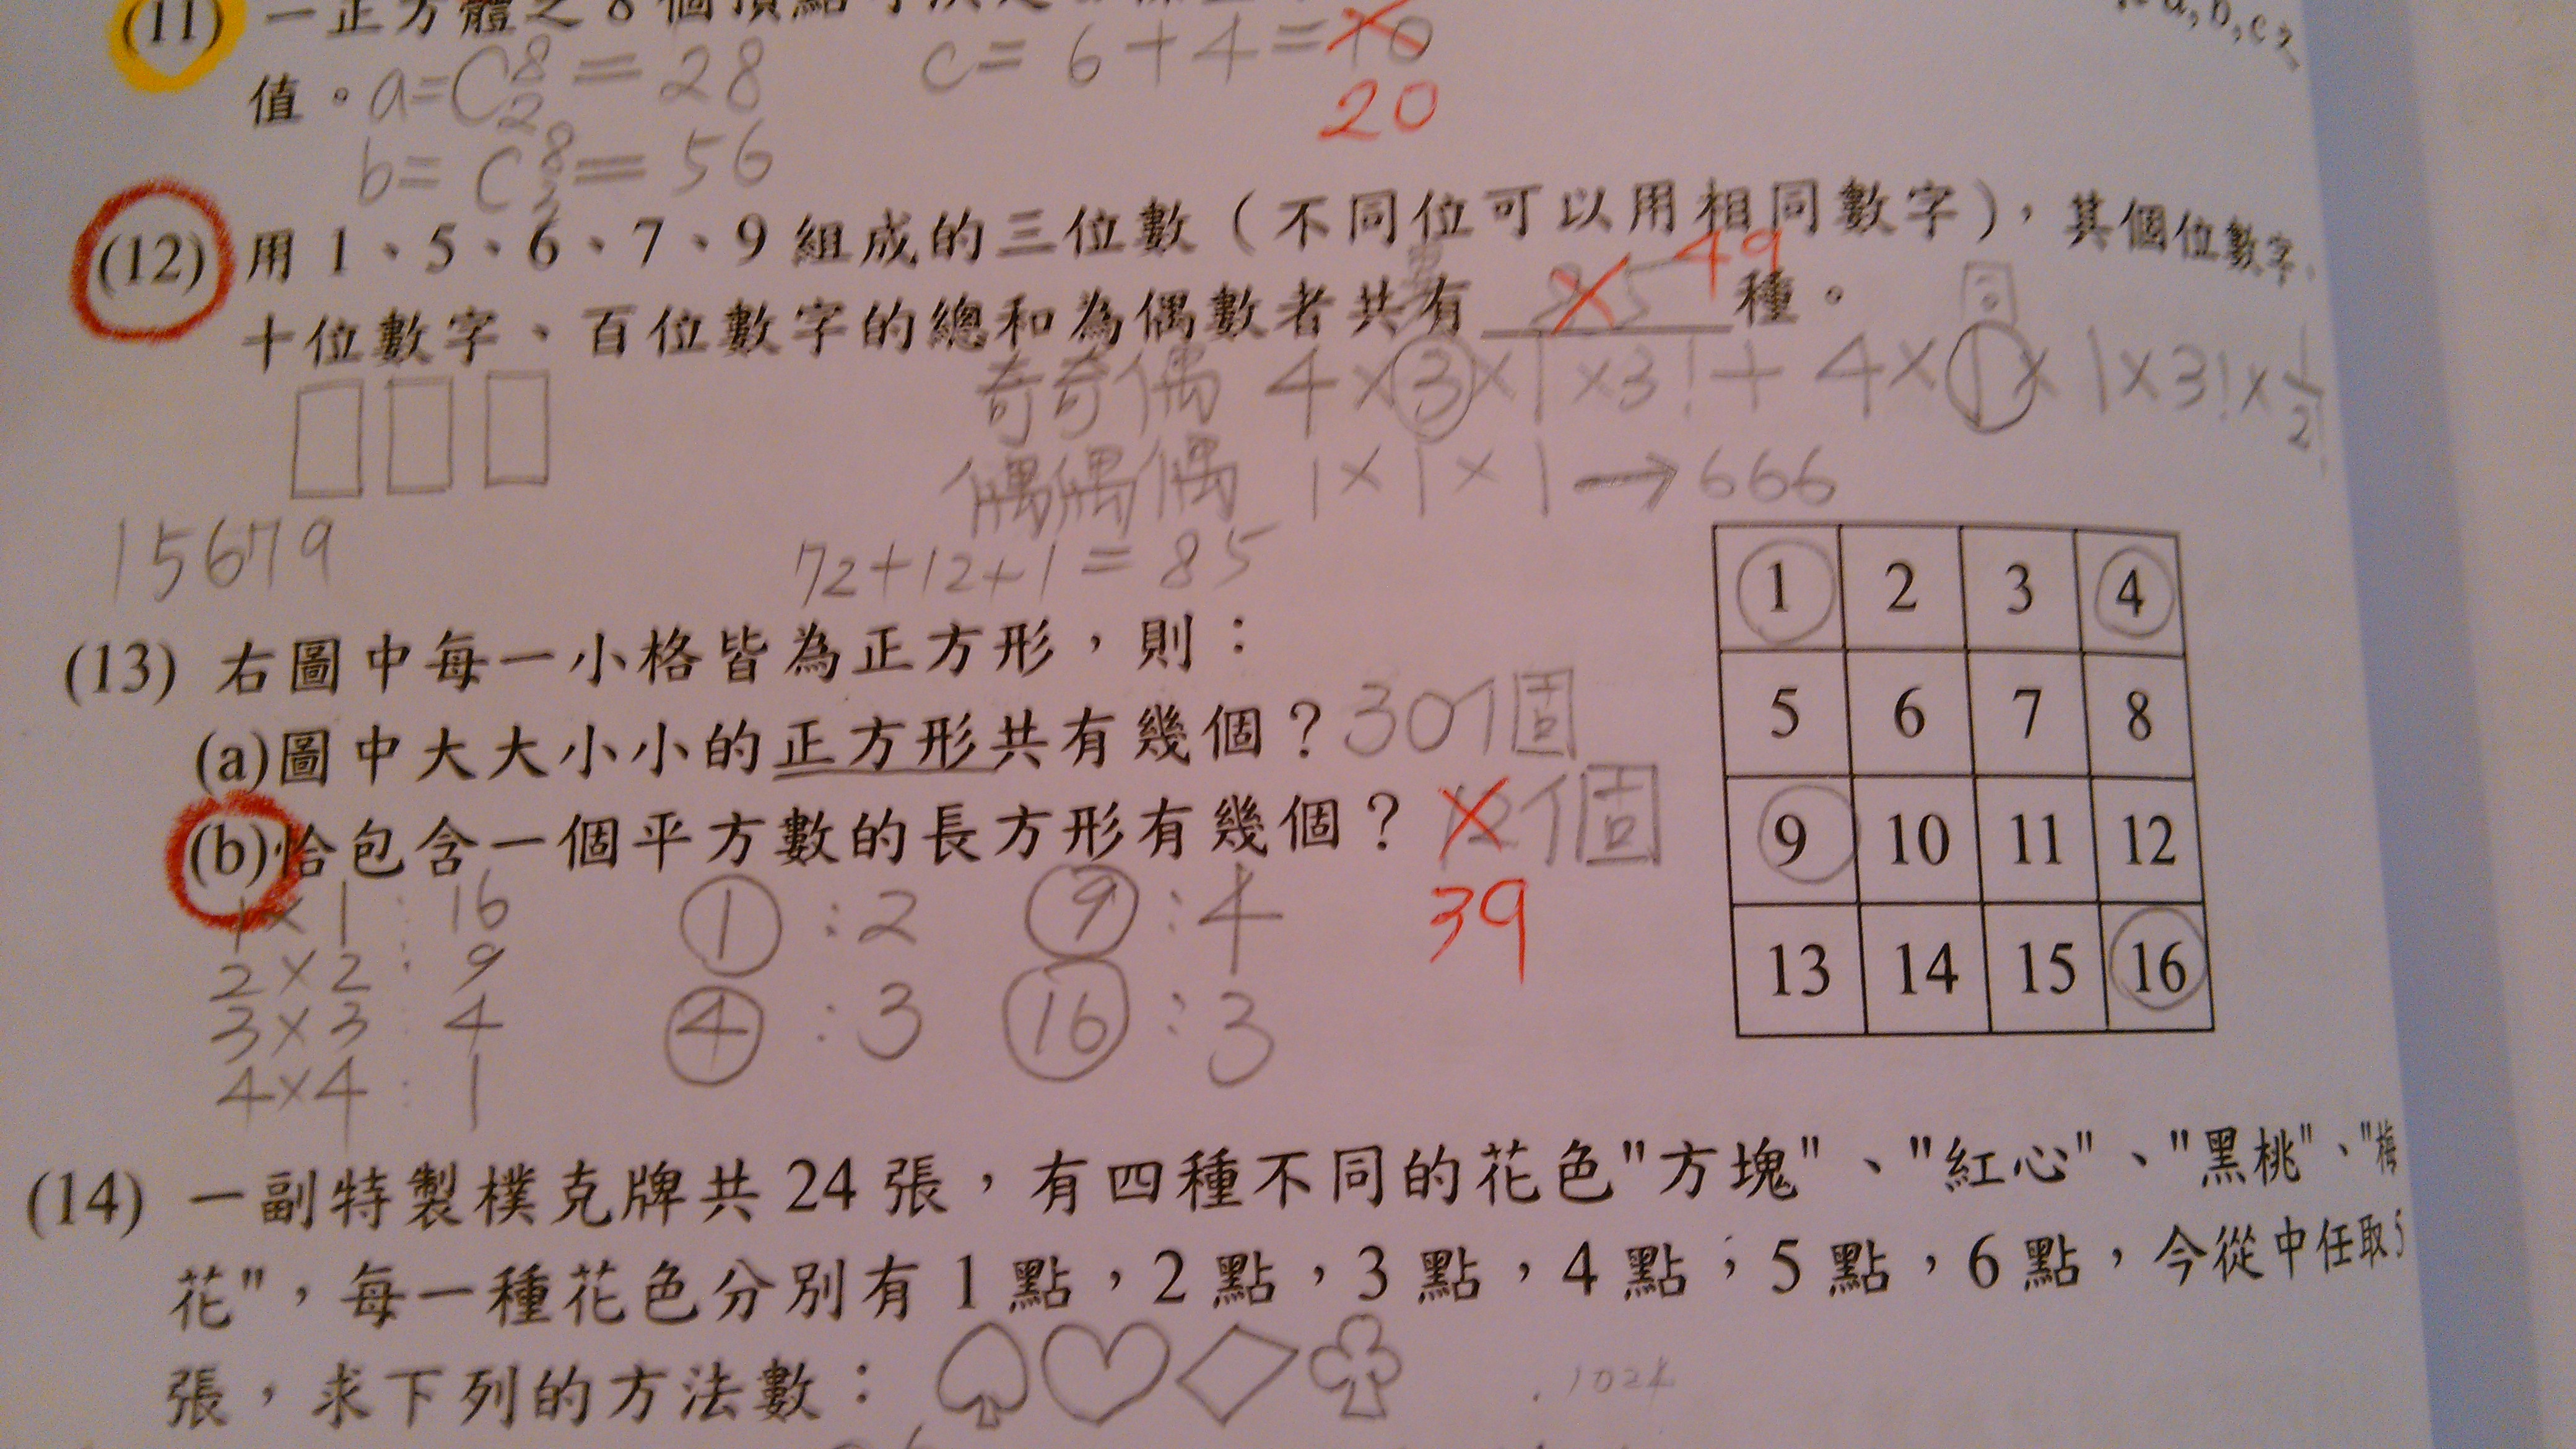 (11) 一正方體之8個頂點可決定
a,b,c之
值。a=C⁸₂=28 c=6+4=10
20
b=C⁸₃=56
(12) 用1、5、6、7、9組成的三位數(不同位可以用相同數字),其個位數字、
十位數字、百位數字的總和為偶數者共有 85 49 種。
奇奇偶 4×3×1×3!+4×1×1×3!×1/2!
偶偶偶 1×1×1→666
15679
72+12+1=85
(13) 右圖中每一小格皆為正方形,則:
(a)圖中大大小小的正方形共有幾個?30個
(b)恰包含一個平方數的長方形有幾個?12個
39
1×1:16 ①:2 ⑨:4
2×2:9
3×3:4 ④:3 ⑯:3
4×4:1
1 2 3 4
5 6 7 8
9 10 11 12
13 14 15 16
(14) 一副特製樸克牌共24張,有四種不同的花色"方塊"、"紅心"、"黑桃"、"梅
花",每一種花色分別有1點,2點,3點,4點,5點,6點,今從中任取5
張,求下列的方法數:
1024